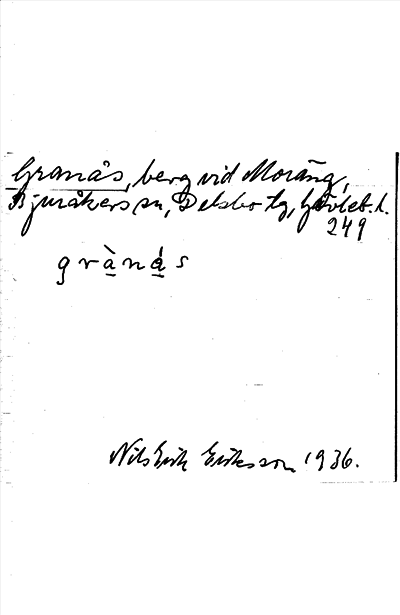 Granås, berg vid Moräng,
Bjuråkers sn, Delsbo tg, Gävleb. l.
249
g r à n á s
Nils Erik Eriksson 1936.